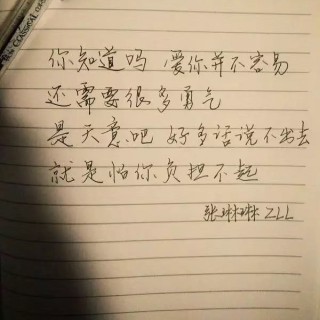 你知道吗 爱你并不容易
还需要很多勇气
是天意吧 好多话说不出去
就是怕你负担不起
张琳琳 ZLL